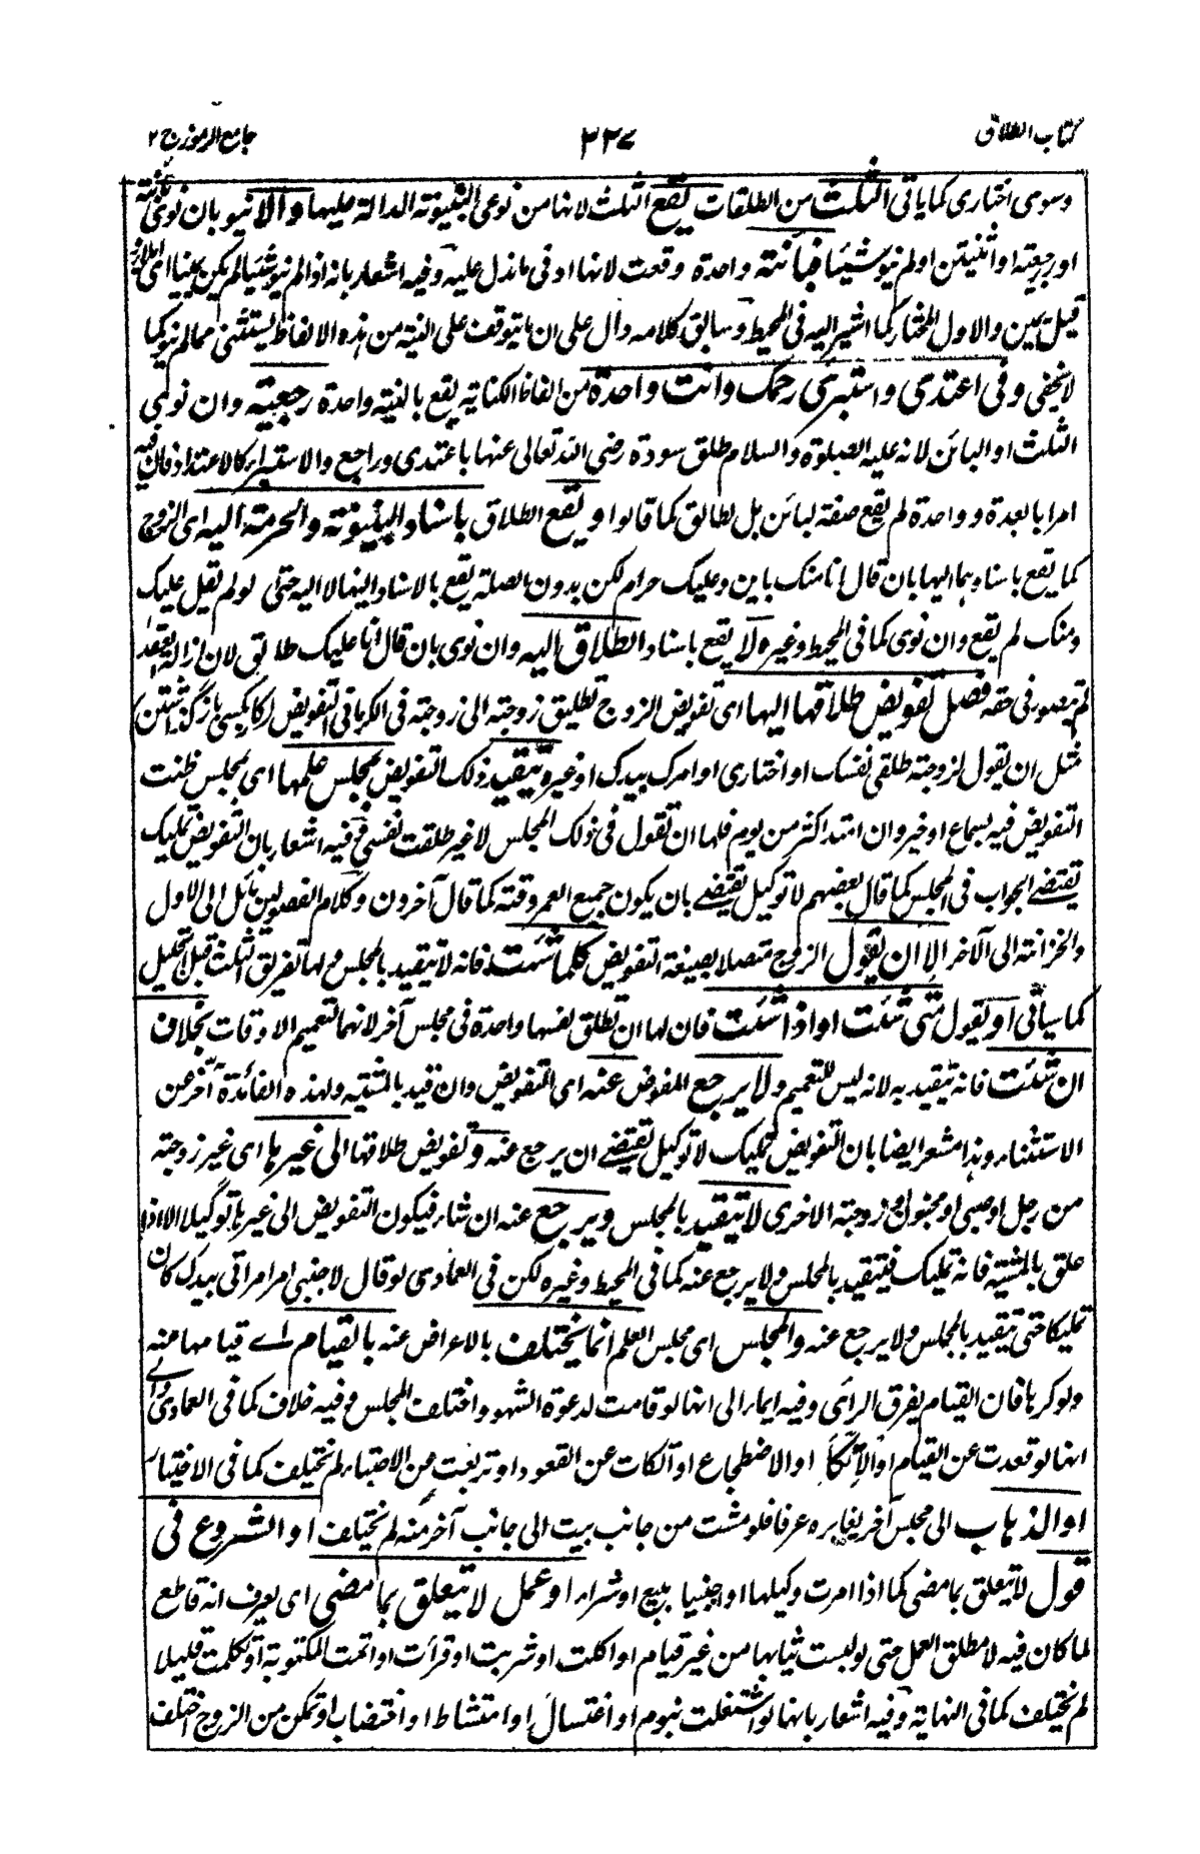 كتاب الطلاق
٣٢٧
جامع الرموز ج ٢
وسوى اختارى كما ياتى الثلث من الطلقات يقع الثلث لانها من نوعى البينونة الدالة عليها والا ينو بان نوى ثنتين
او رجعية او اثنتين او لم ينو شيئا فبائنة واحدة وقعت لانها ادنى ما تدل عليه وفيه اشعار بانه اذا لم ينو شيئا لم يكن يمينا اى
قيل يمين والاول المختار كما اشير اليه فى المحيط وسابق كلامه دال على ان ما يتوقف على النية من هذه الالفاظ يستثنى مما لم ينو كما
لا يخفى وفى اعتدى واستبرئى رحمك وانت واحدة من الفاظ الكناية يقع بالنية واحدة رجعية وان نوى
الثلث او البائن لانه عليه الصلوة والسلام طلق سودة رضى الله تعالى عنها باعتدى وراجع والاستبراء كالاعتداد فان فيه
امرا بالعدة وواحدة لم يقع صفة لبائن بل لطالق كما قالوا ويقع الطلاق باسناد البينونة والحرمة اليه اى الزوج
كما يقع باسنادهما اليها بان قال انا منك باين وعليك حرام لكن بدون الصلة يقع بالاسناد اليها لا اليه حتى لو لم يقل عليك
ومنك لم يقع وان نوى كما فى المحيط وغيره لا يقع باسناد الطلاق اليه وان نوى بان قال انا عليك طالق لان ازالة القيد
لم يتصور فى حقه فصل تفويض طلاقها اليها اى تفويض الزوج تطليق زوجته الى زوجته فى الكرمانى التفويض كار بكسى باز گذاشتن
مثل ان يقول لزوجته طلقى نفسك او اختارى او امرك بيدك او غيره يتقيد ذلك التفويض بمجلس علمها اى بمجلس ظنت
التفويض فيه بسماع او خبر وان امتد اكثر من يوم فلها ان تقول فى ذلك المجلس لا غير طلقت نفسى وفيه اشعار بان التفويض تمليك
يقتضى الجواب فى المجلس كما قال بعضهم لا توكيل يقتضى بان يكون جميع العمر وقته كما قال آخرون وكلام الفصولين مائل الى الاول
والخزانة الى الآخر الا ان يقول الزوج متصلا بصيغة التفويض كلما شئت فانه لا يتقيد بالمجلس ولها تفريق الثلث قبل التحليل
كما سيأتى او يقول متى شئت او اذا شئت فان لها ان تطلق نفسها واحدة فى مجلس آخر لانهما لتعميم الاوقات بخلاف
ان شئت فانه يتقيد به لانه ليس للتعميم ولا يرجع المفوض عنه اى التفويض وان قيد بالمشية ولهذه الفائدة آخر عن
الاستثناء وهذا مشعر ايضا بان التفويض تمليك لا توكيل يقتضى ان يرجع عنه وتفويض طلاقها الى غيرها اى غير زوجته
من رجل او صبى او مجنون او زوجته الاخرى لا يتقيد بالمجلس ويرجع عنه ان شاء فيكون التفويض الى غيرها توكيلا الا اذا
علق بالمشية فانه تمليك فيتقيد بالمجلس ولا يرجع عنه كما فى المحيط وغيره لكن فى العمادى لو قال لاجنبى امر امراتى بيدك كان
تمليكا حتى يتقيد بالمجلس ولا يرجع عنه والمجلس اى مجلس العلم انما يختلف بالاعراض عنه بالقيام اے قيامها منه
ولو كرها فان القيام يفرق الرائى وفيه ايماء الى انها لو قامت لدعوة الشهود اختلف المجلس وفيه خلاف كما فى العمادى والى
انها لو قعدت عن القيام او الاتكاء او الاضطجاع او اتكات عن القعود او تربعت من الاحتباء لم يختلف كما فى الاختيار
او الذهاب الى مجلس آخر يغايره عرفا فلو مشت من جانب بيت الى جانب آخر منه لم يختلف او الشروع فى
قول لا يتعلق بما مضى كما اذا امرت وكيلها او اجنبيا ببيع او شراء او عمل لا يتعلق بما مضى اى يعرف انه قاطع
لما كان فيه لا مطلق العمل حتى لو لبست ثيابها من غير قيام او اكلت او شربت او قرأت او اتمت المكتوبة او تكلمت قليلا
لم يختلف كما فى النهاية وفيه اشعار بانها لو اشتغلت بنوم او اغتسال او امتشاط او اختضاب او تمكن من الزوج اختلف